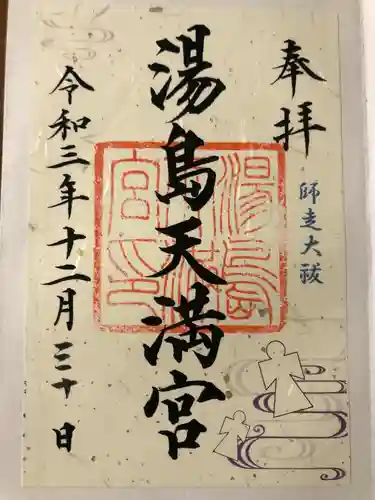 奉拝
師走大祓
湯島天満宮
湯島天満宮印
令和三年十二月三十日